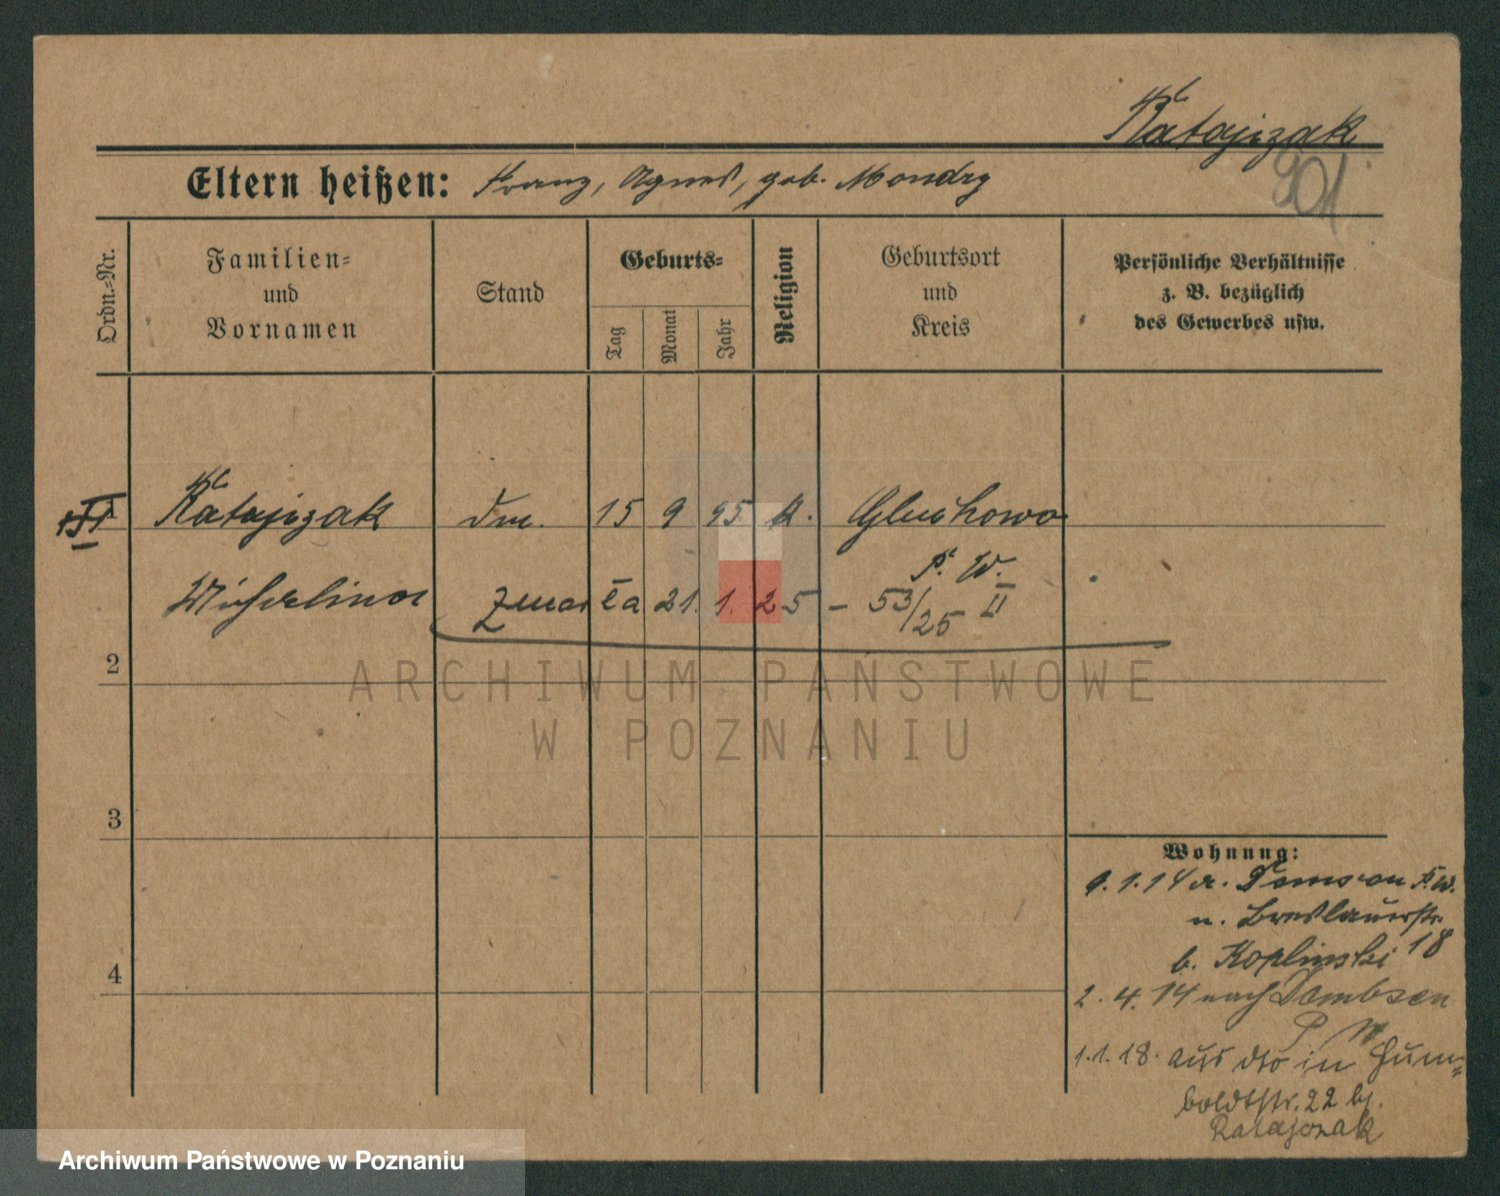 Ratajczak
901
Eltern heißen: Franz, Agnes, geb. Mondry
Ordn.-Nr.
Familien- und Vornamen
Stand
Geburts-
Tag
Monat
Jahr
Religion
Geburtsort und Kreis
Persönliche Verhältnisse z. B. bezüglich des Gewerbes usw.
Ratajczak dm. 15 9 95 k. Gluchowo
P. W.
zmarła 21. 1. 25 – 53/25 II
2
3
4
Wohnung:
9.1.14 a. P. W.
n. Breslauerstr.
b. Koplinski 18
2. 4. 14 nach Dembsen
P W
1.1.18. aus dto in Hum-
boldtstr. 22 bj.
Ratajczak
ARCHIWUM PAŃSTWOWE
W POZNANIU
Archiwum Państwowe w Poznaniu